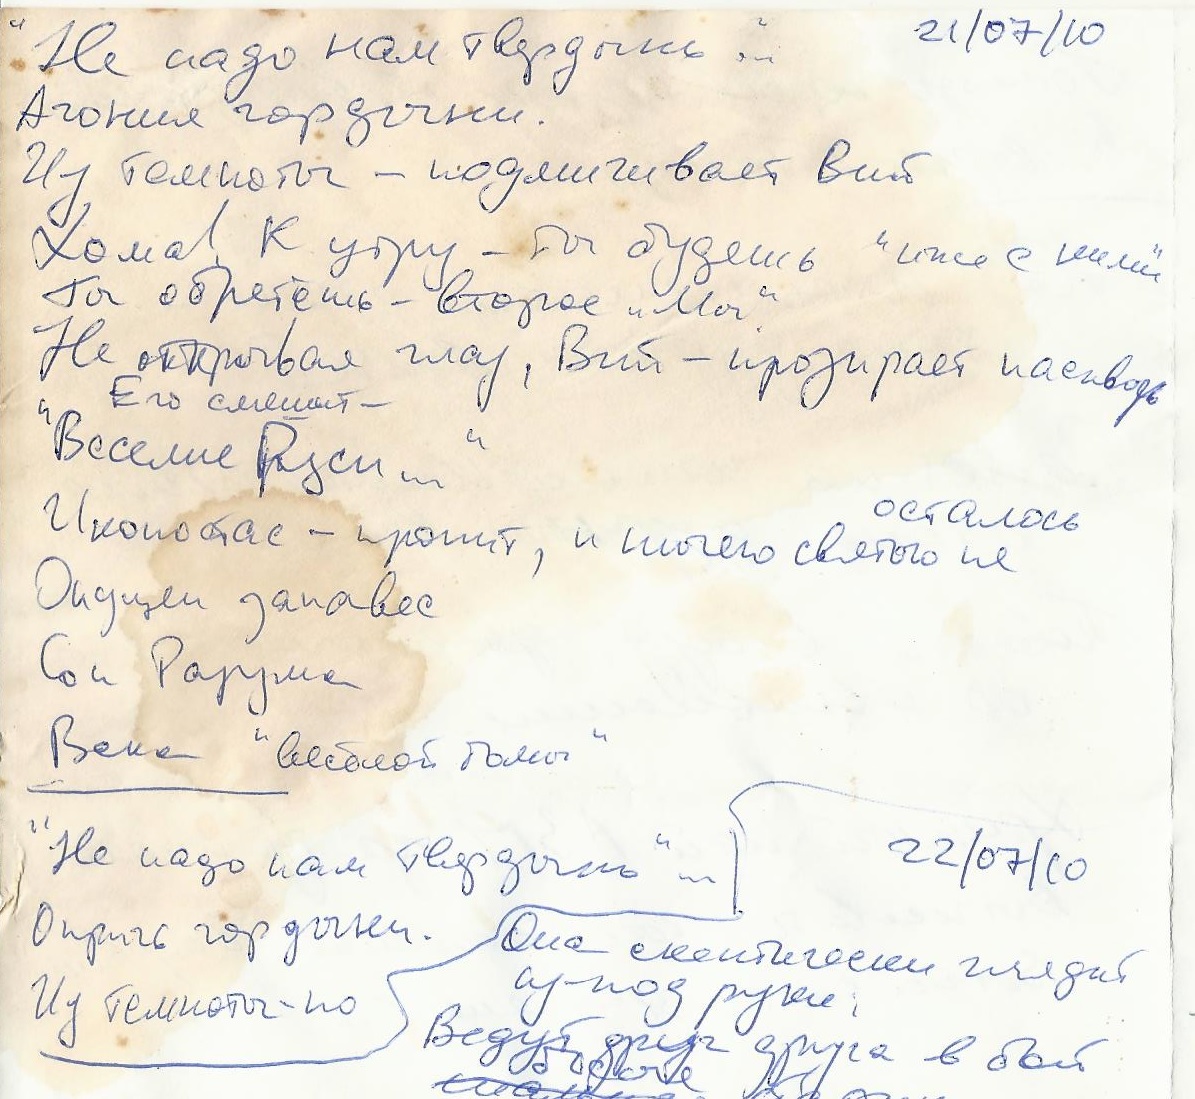 21/07/10
"Не надо нам твердынь"...
Агония гордыни.
Из темноты – подмигивает Вий
Хома! К утру – ты будешь "иже с ними"
Ты обретёшь – второе "Мы".
Не открывая глаз, Вий – прозирает насквозь
Его смешит –
"Веселие Руси..."
осталось
Иконостас – пропит, и ничего святого не
Опущен занавес
Сон Разума
Века "весёлой тьмы"
22/07/10
"Не надо нам твердынь"...
Опричь гордыни.
Из темноты – но
Она скептически глядит
из-под руки;
Ведут друг друга в бой